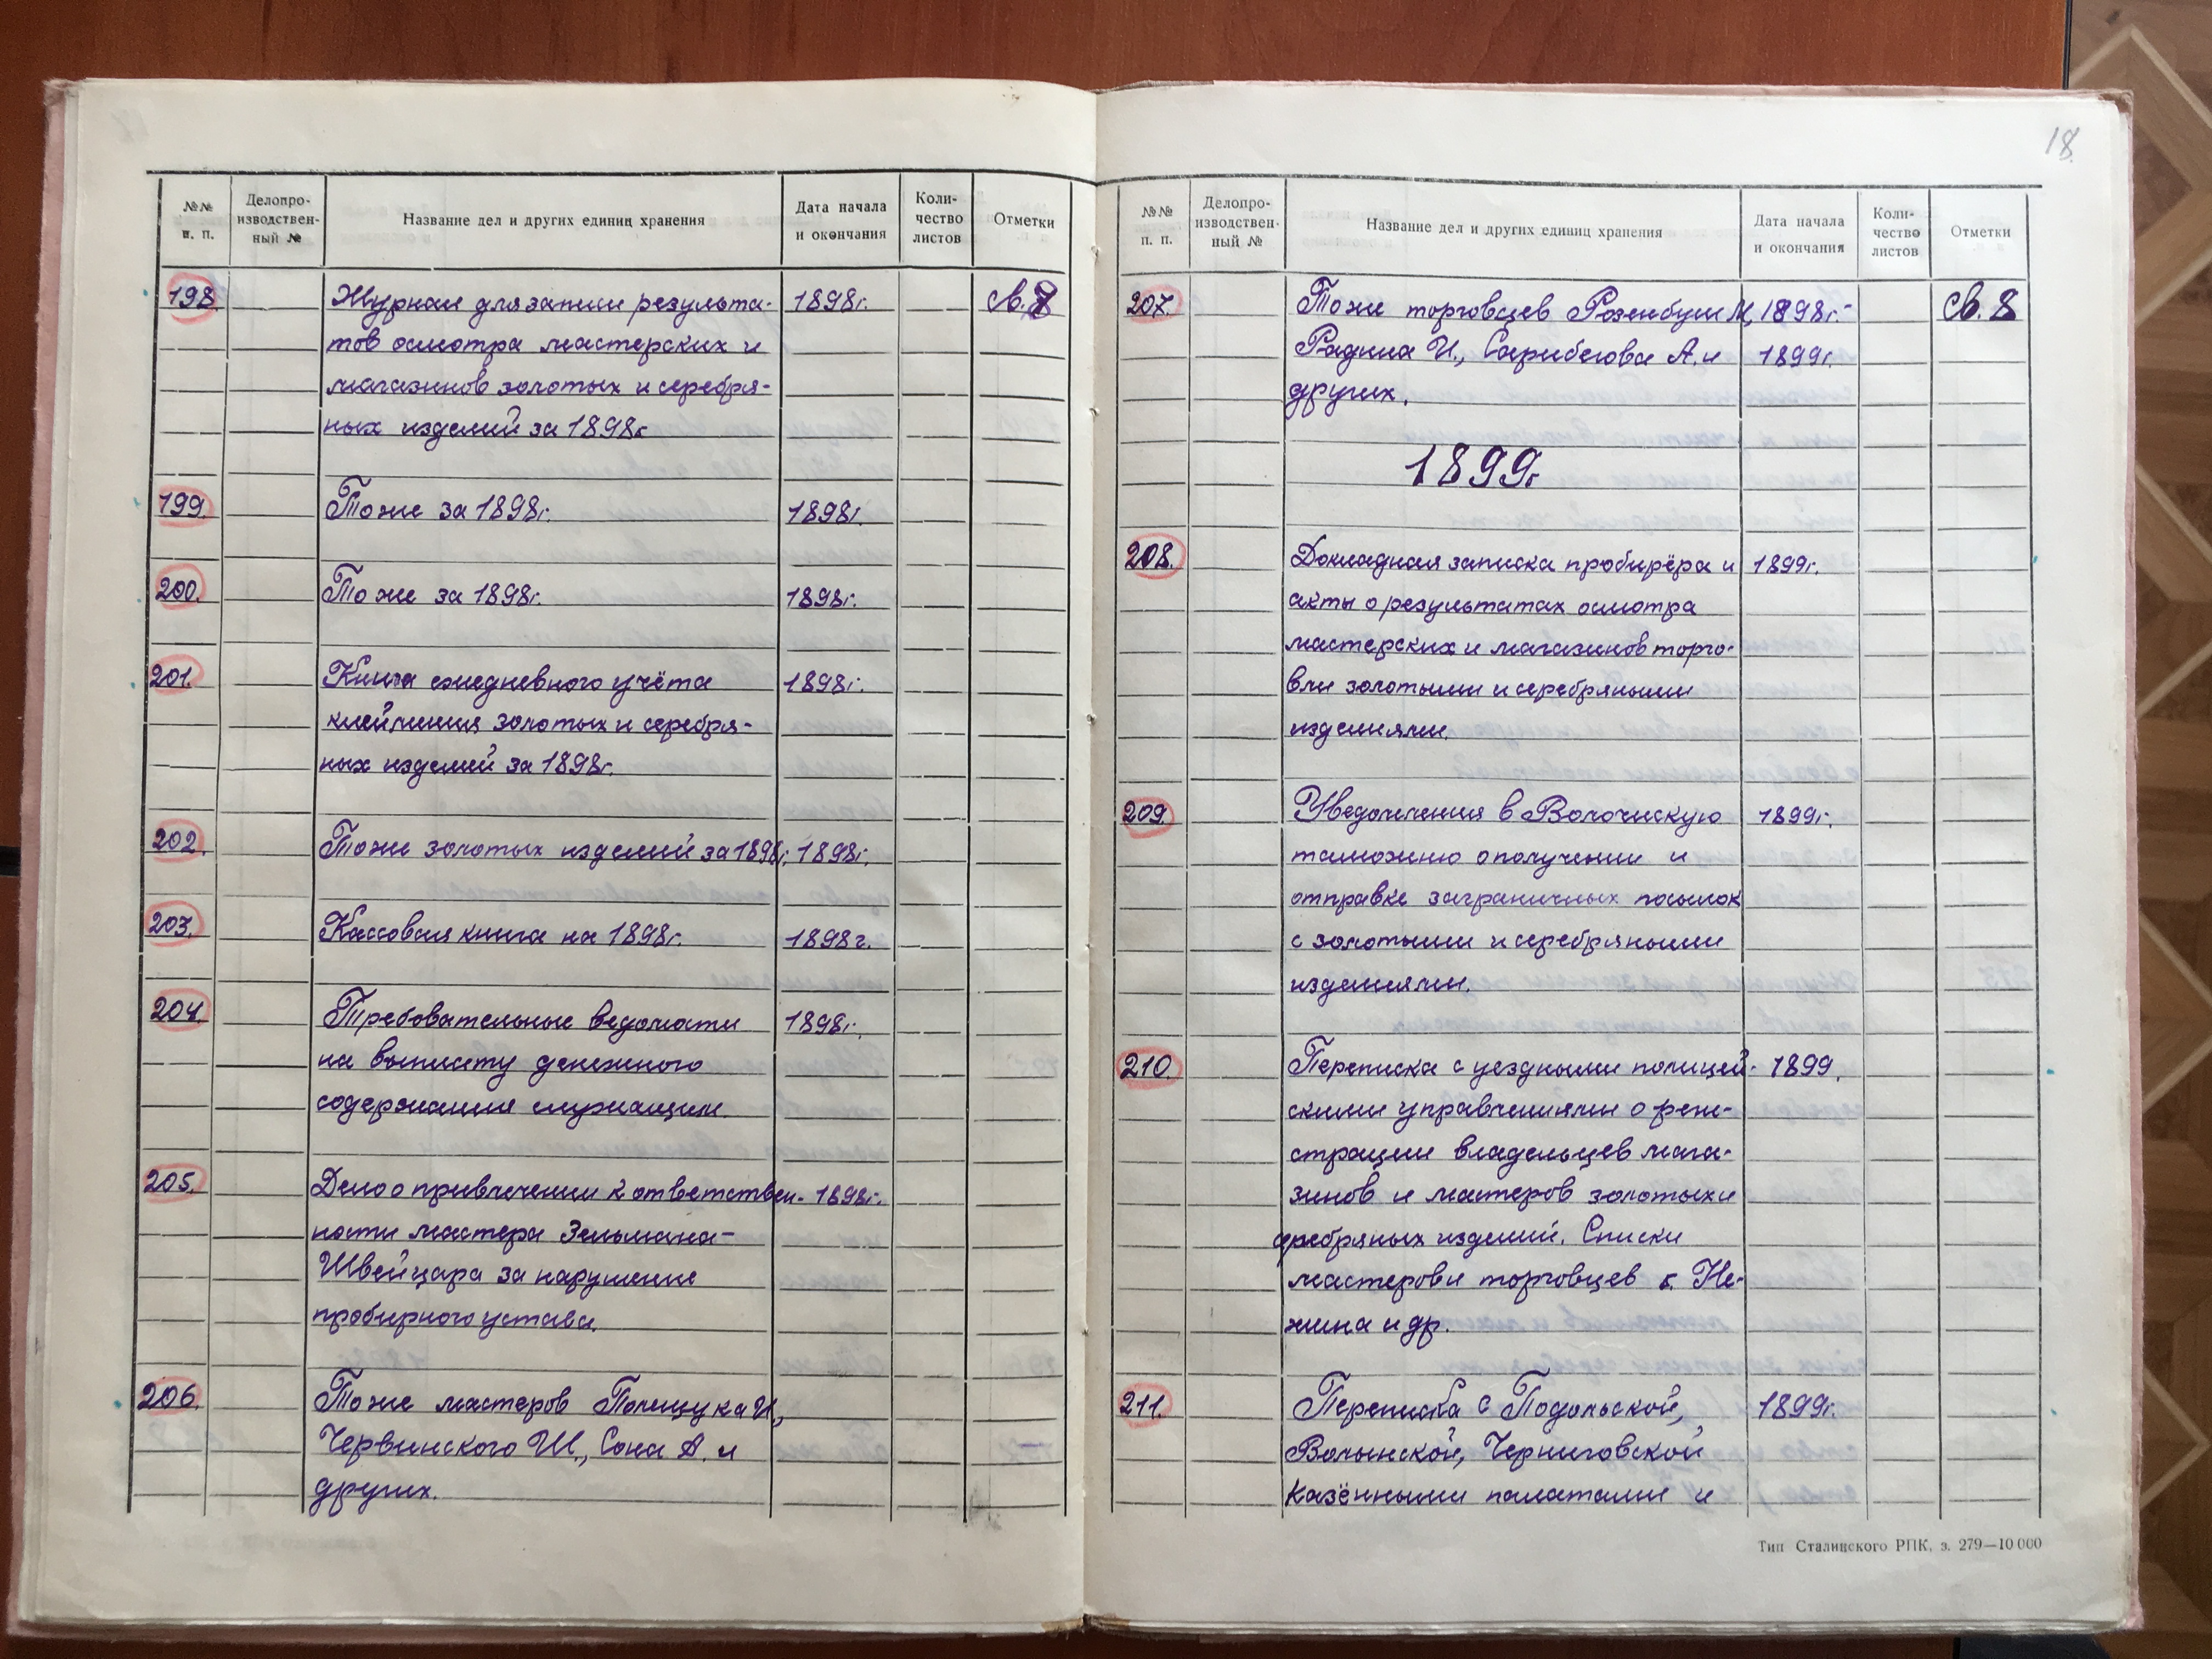 №№ п. п.
Делопро-
изводствен-
ный №
Название дел и других единиц хранения
Дата начала
и окончания
Коли-
чество
листов
Отметки
198. Журнал для записи результа- 1898г. св. 8
тов осмотра мастерских и
магазинов золотых и серебря-
ных изделий за 1898г.
199. То же за 1898г. 1898г.
200. То же за 1898г. 1898г.
201. Книга ежедневного учёта 1898г.
клеймения золотых и серебря-
ных изделий за 1898г.
202. То же золотых изделий за 1898г. 1898г.
203. Кассовая книга на 1898г. 1898г.
204. Требовательные ведомости 1898г.
на выплату денежного
содержания служащим.
205. Дело о привлечении к ответствен- 1898г.
ности мастера Зельмана-
Швейцара за нарушение
пробирного устава.
206. То же мастеров Полищука И.,
Червинского Ш., Сона А. и
других.
18
№№
п. п.
Делопро-
изводствен-
ный №
Название дел и других единиц хранения
Дата начала
и окончания
Коли-
чество
листов
Отметки
207. То же торговцев Розенбуш М, 1898г.- св. 8
Радина И., Сарибегова А. и 1899г.
других.
1899г.
208. Докладная записка пробирёра и 1899г.
акты о результатах осмотра
мастерских и магазинов торго-
вли золотыми и серебряными
изделиями.
209. Уведомления в Волочискую 1899г.
таможню о получении и
отправке заграничных посылок
с золотыми и серебряными
изделиями.
210. Переписка с уездными полицей- 1899.
скими управлениями о реги-
страции владельцев мага-
зинов и мастеров золотых и
серебряных изделий. Списки
мастеров и торговцев г. Не-
жина и др.
211. Переписка с Подольской, 1899г.
Волынской, Черниговской
казёнными палатами и
Тип Сталинского РПК, з. 279—10 000